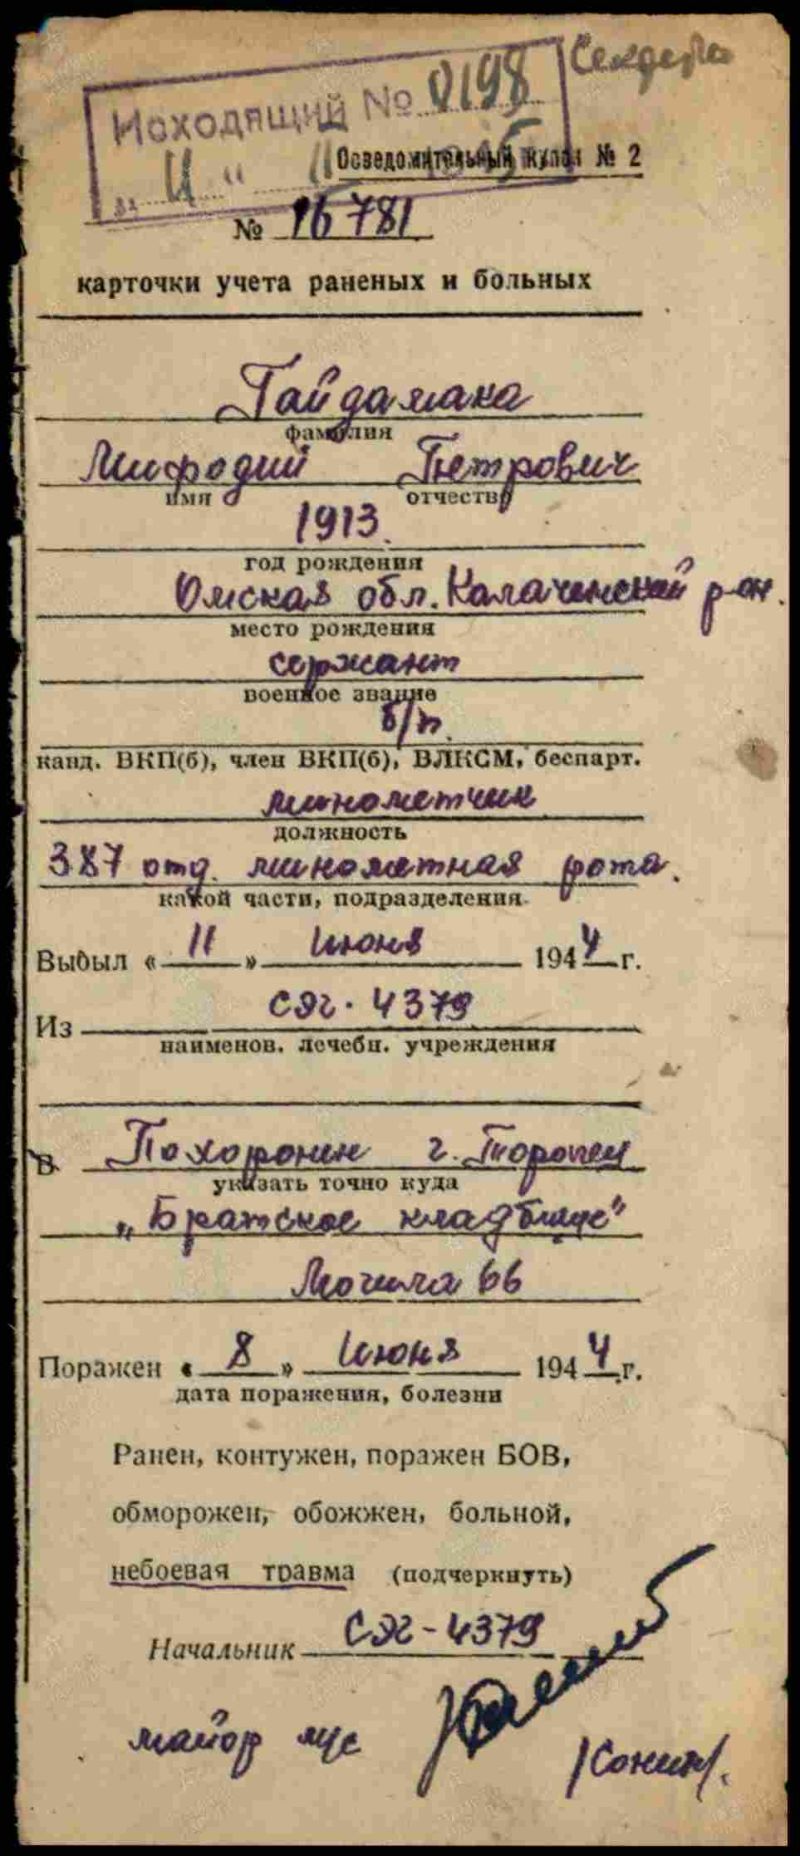 Секретно
Исходящий № 0198
"11" 11 1945
Осведомительный купон № 2
№ 16781
карточки учета раненых и больных
Гайдамака
фамилия
Мифодий Петрович
имя отчество
1913
год рождения
Омская обл. Калаченский р-он.
место рождения
сержант
военное звание
б/п.
канд. ВКП(б), член ВКП(б), ВЛКСМ, беспарт.
минометчик
должность
387 отд. минометная рота.
какой части, подразделения
Выбыл « 11 » Июня 1944 г.
Из СЭГ. 4379
наименов. лечебн. учреждения
В Похоронен г. Торопец
указать точно куда
„Братское кладбище"
Могила 66
Поражен « 8 » Июня 1944 г.
дата поражения, болезни
Ранен, контужен, поражен БОВ,
обморожен, обожжен, больной,
небоевая травма (подчеркнуть)
Начальник СЭГ-4379
майор м/с
/Сонин/.